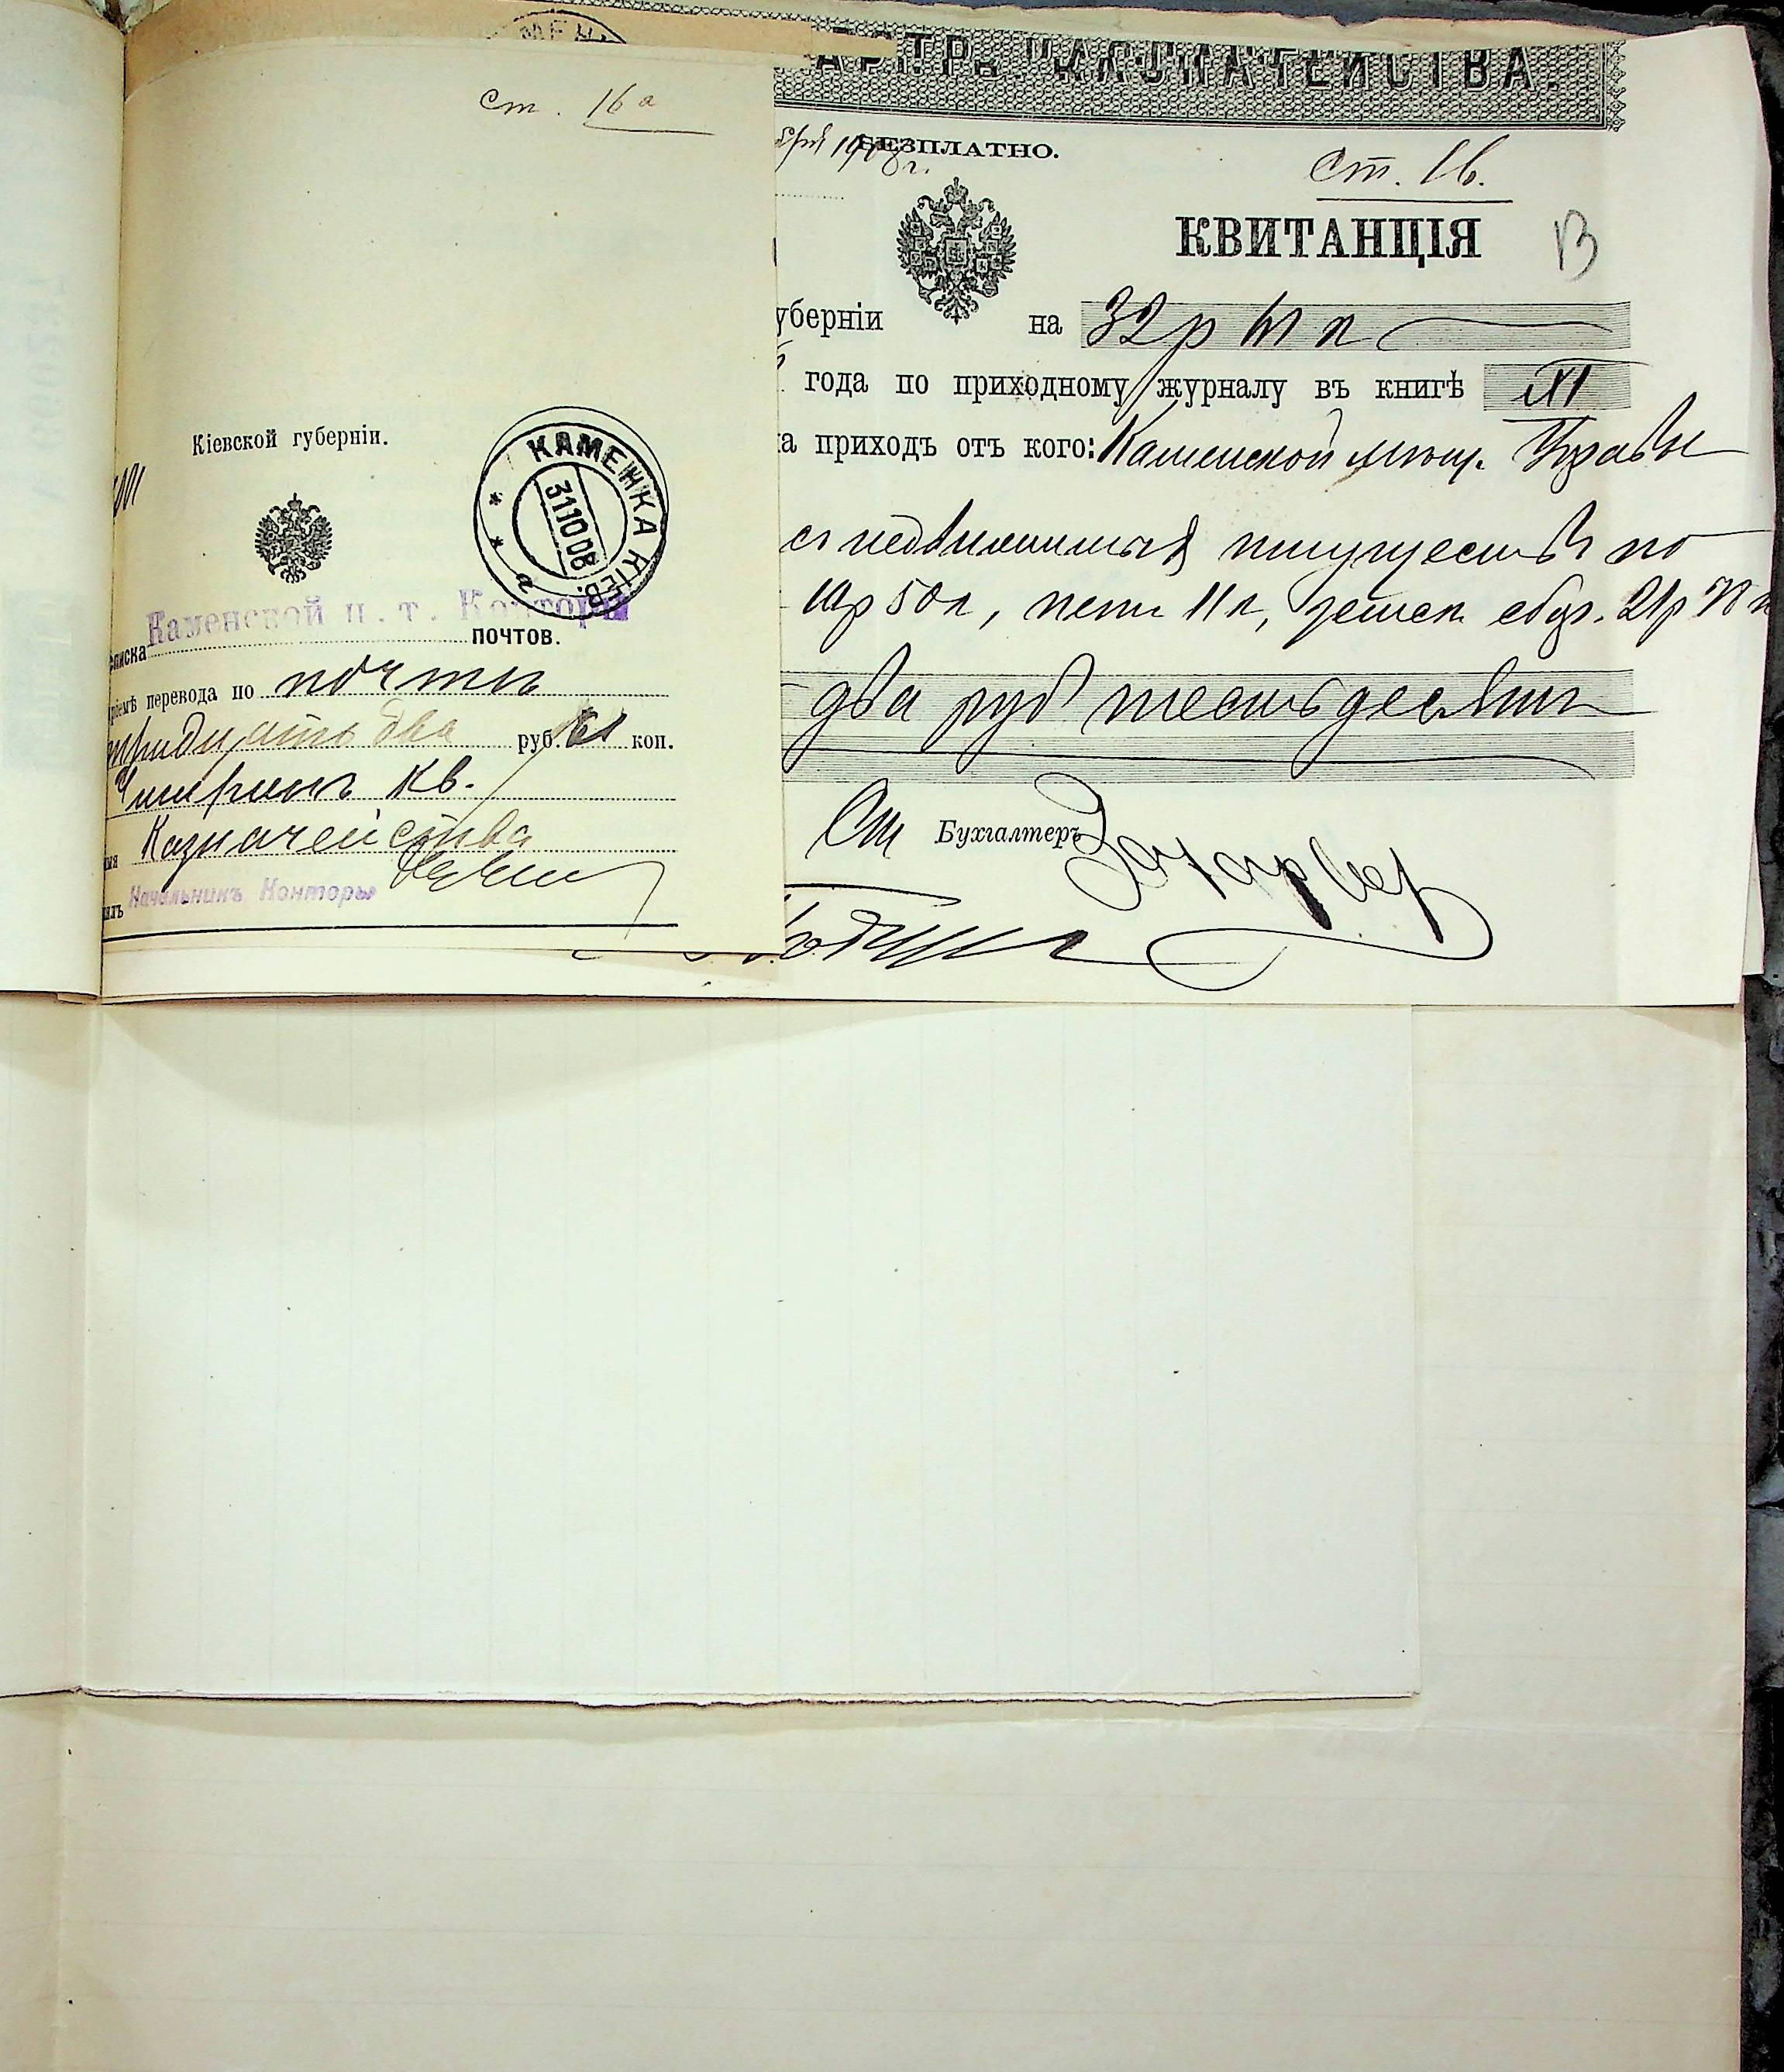 ст. 16 а
Кіевской губерніи.
КАМЕНКА КІЕВ.
31 10 08
а
Каменской п. т. Конторы
почтов.
перевода по почтѣ
тридцать два руб. 61 коп.
Чигиринъ Кв.
Казначейства
Начальникъ Конторы
КАЗНАЧЕЙСТВА.
БЕЗПЛАТНО.
1908 г.
ст. 16.
КВИТАНЦІЯ
13
уберніи на 32 р 61 к
года по приходному журналу въ книгѣ XI
а приходъ отъ кого: Каменской мѣщ. Управы
съ недвижимыхъ имуществъ по
10р 50к, пени 11к, земск сбор. 21р
два руб шестьдесят
Ст Бухгалтеръ